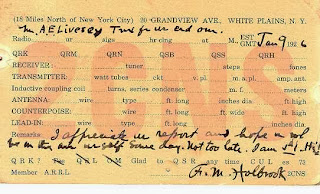 (18 Miles North of New York City) 20 GRANDVIEW AVE., WHITE PLAINS, N. Y.
Mr. A E Livesey Tnx fr ur crd om.
Radio ur sigs hr cding at M. EST GMT Jan 9 1926
QRK QRM QRN QSB QSS QRH
RECEIVER: tuner steps fones
TRANSMITTER: watt tubes ckt v. pl. m/a. ampl. ant.
Inductive coupling coil, turns, series condenser m.f. meters
ANTENNA wire type ft. long dia ft. high
COUNTERPOISE: wire type ft. long ins dia ft. high
LEAD-IN: wire type ft. long ins. dia
Remarks I appreciate ur report and hope to wk
some day. Not too late. I am 1st Hiff
QRK? Pse QSL OM Glad to QSR any time CUL es 73
Member A. R. R. L. A. M. Holbrook 2CNS